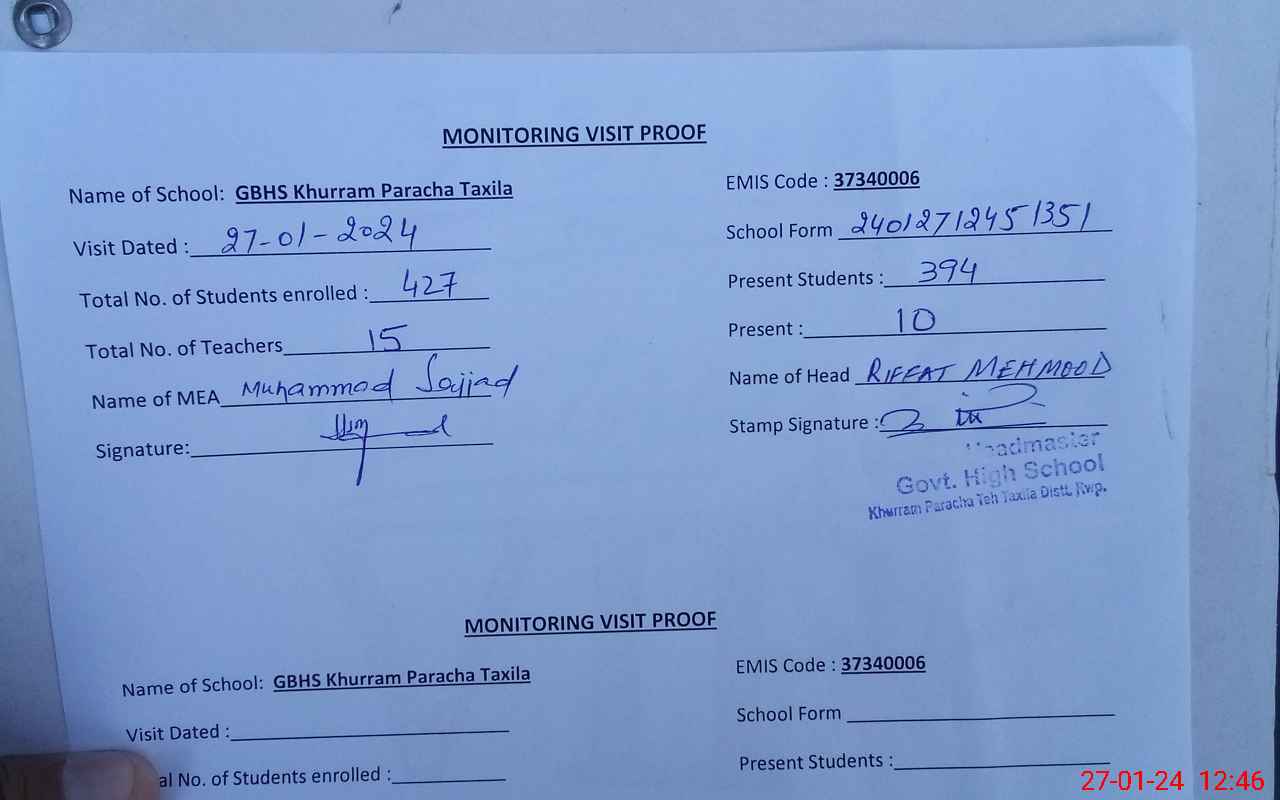 MONITORING VISIT PROOF
Name of School: GBHS Khurram Paracha Taxila
EMIS Code : 37340006
Visit Dated : 27-01-2024
School Form 24012712451351
Total No. of Students enrolled : 427
Present Students : 394
Total No. of Teachers 15
Present : 10
Name of MEA Muhammad Sajjad
Name of Head RIFFAT MEHMOOD
Signature:
Stamp Signature :
Headmaster
Govt. High School
Khurram Paracha Teh Taxila Distt. Rwp.
MONITORING VISIT PROOF
Name of School: GBHS Khurram Paracha Taxila
EMIS Code : 37340006
Visit Dated :
School Form
al No. of Students enrolled :
Present Students :
27-01-24 12:46